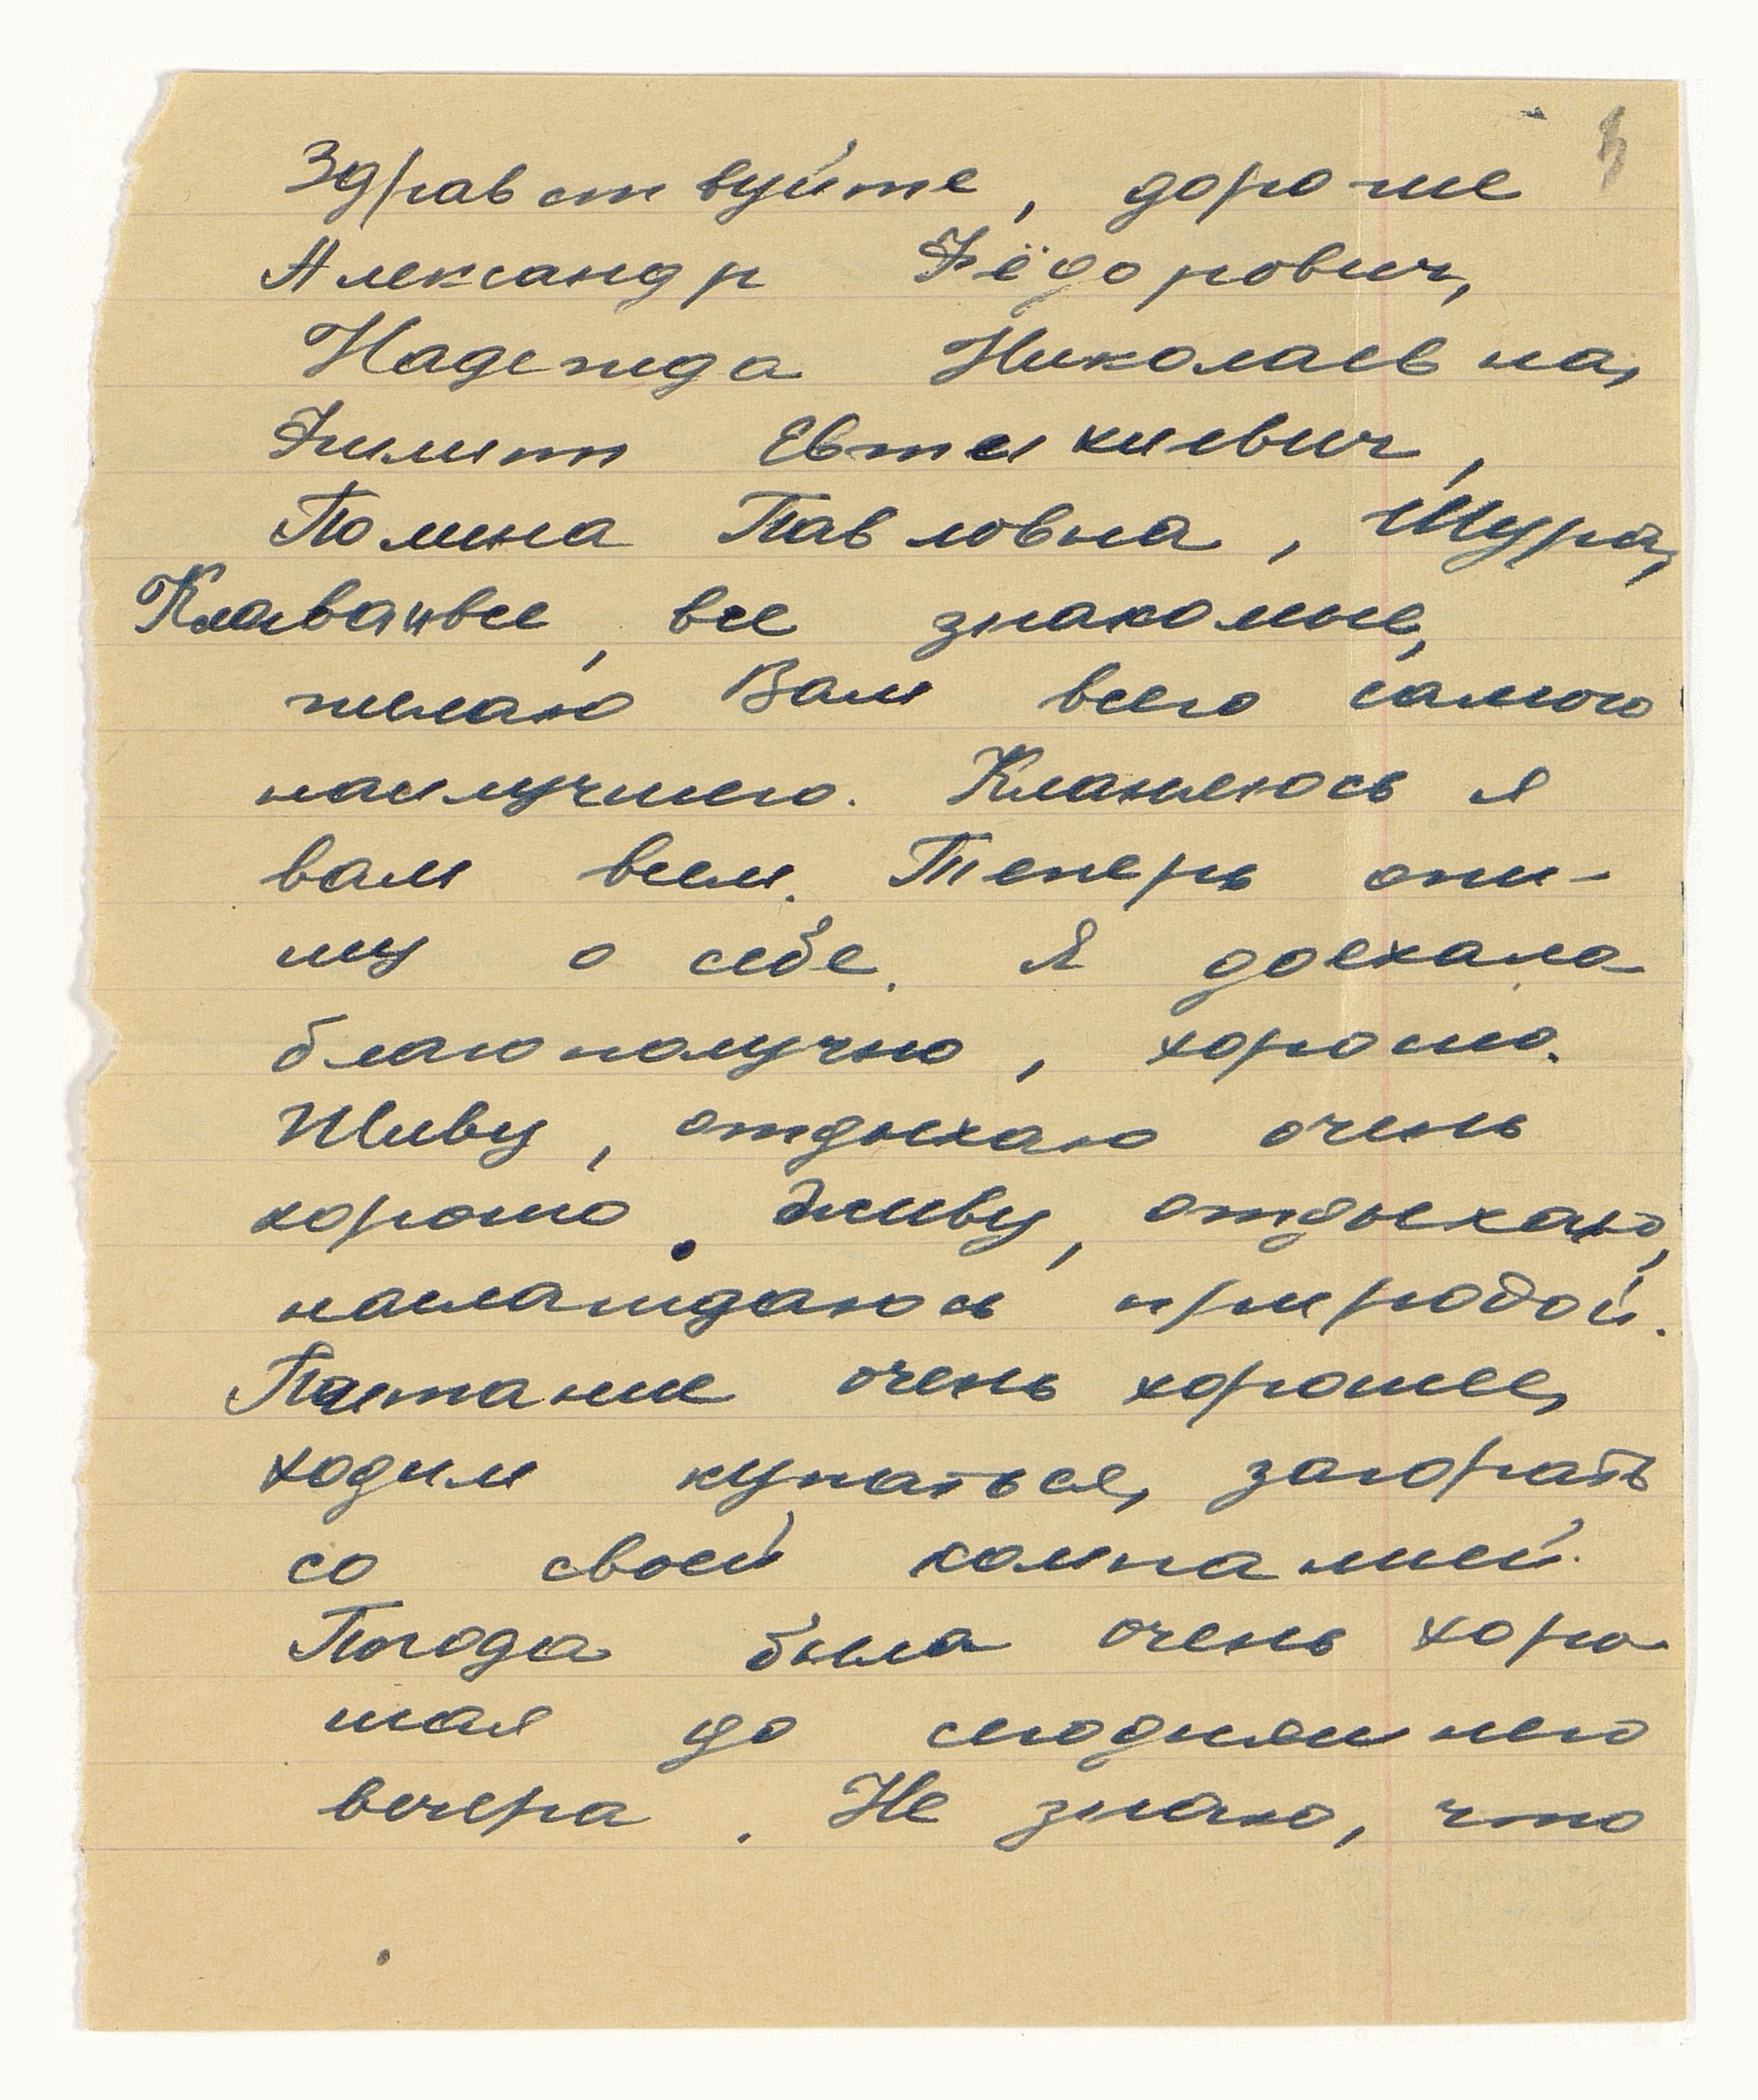 Здравствуйте, дорогие
Александр Фёдорович,
Надежда Николаевна,
Филипп Евтихиевич,
Полина Павловна, Шура,
Клава и все, все знакомые,
желаю Вам всего самого
наилучшего. Кланяюсь я
вам всем. Теперь опи-
шу о себе. Я доехала
благополучно, хорошо.
Живу, отдыхаю очень
хорошо. Живу, отдыхаю,
наслаждаюсь природой.
Питание очень хорошее,
ходим купаться, загорать
со своей компанией.
Погода была очень хоро
шая до сегодняшнего
вечера. Не знаю, что